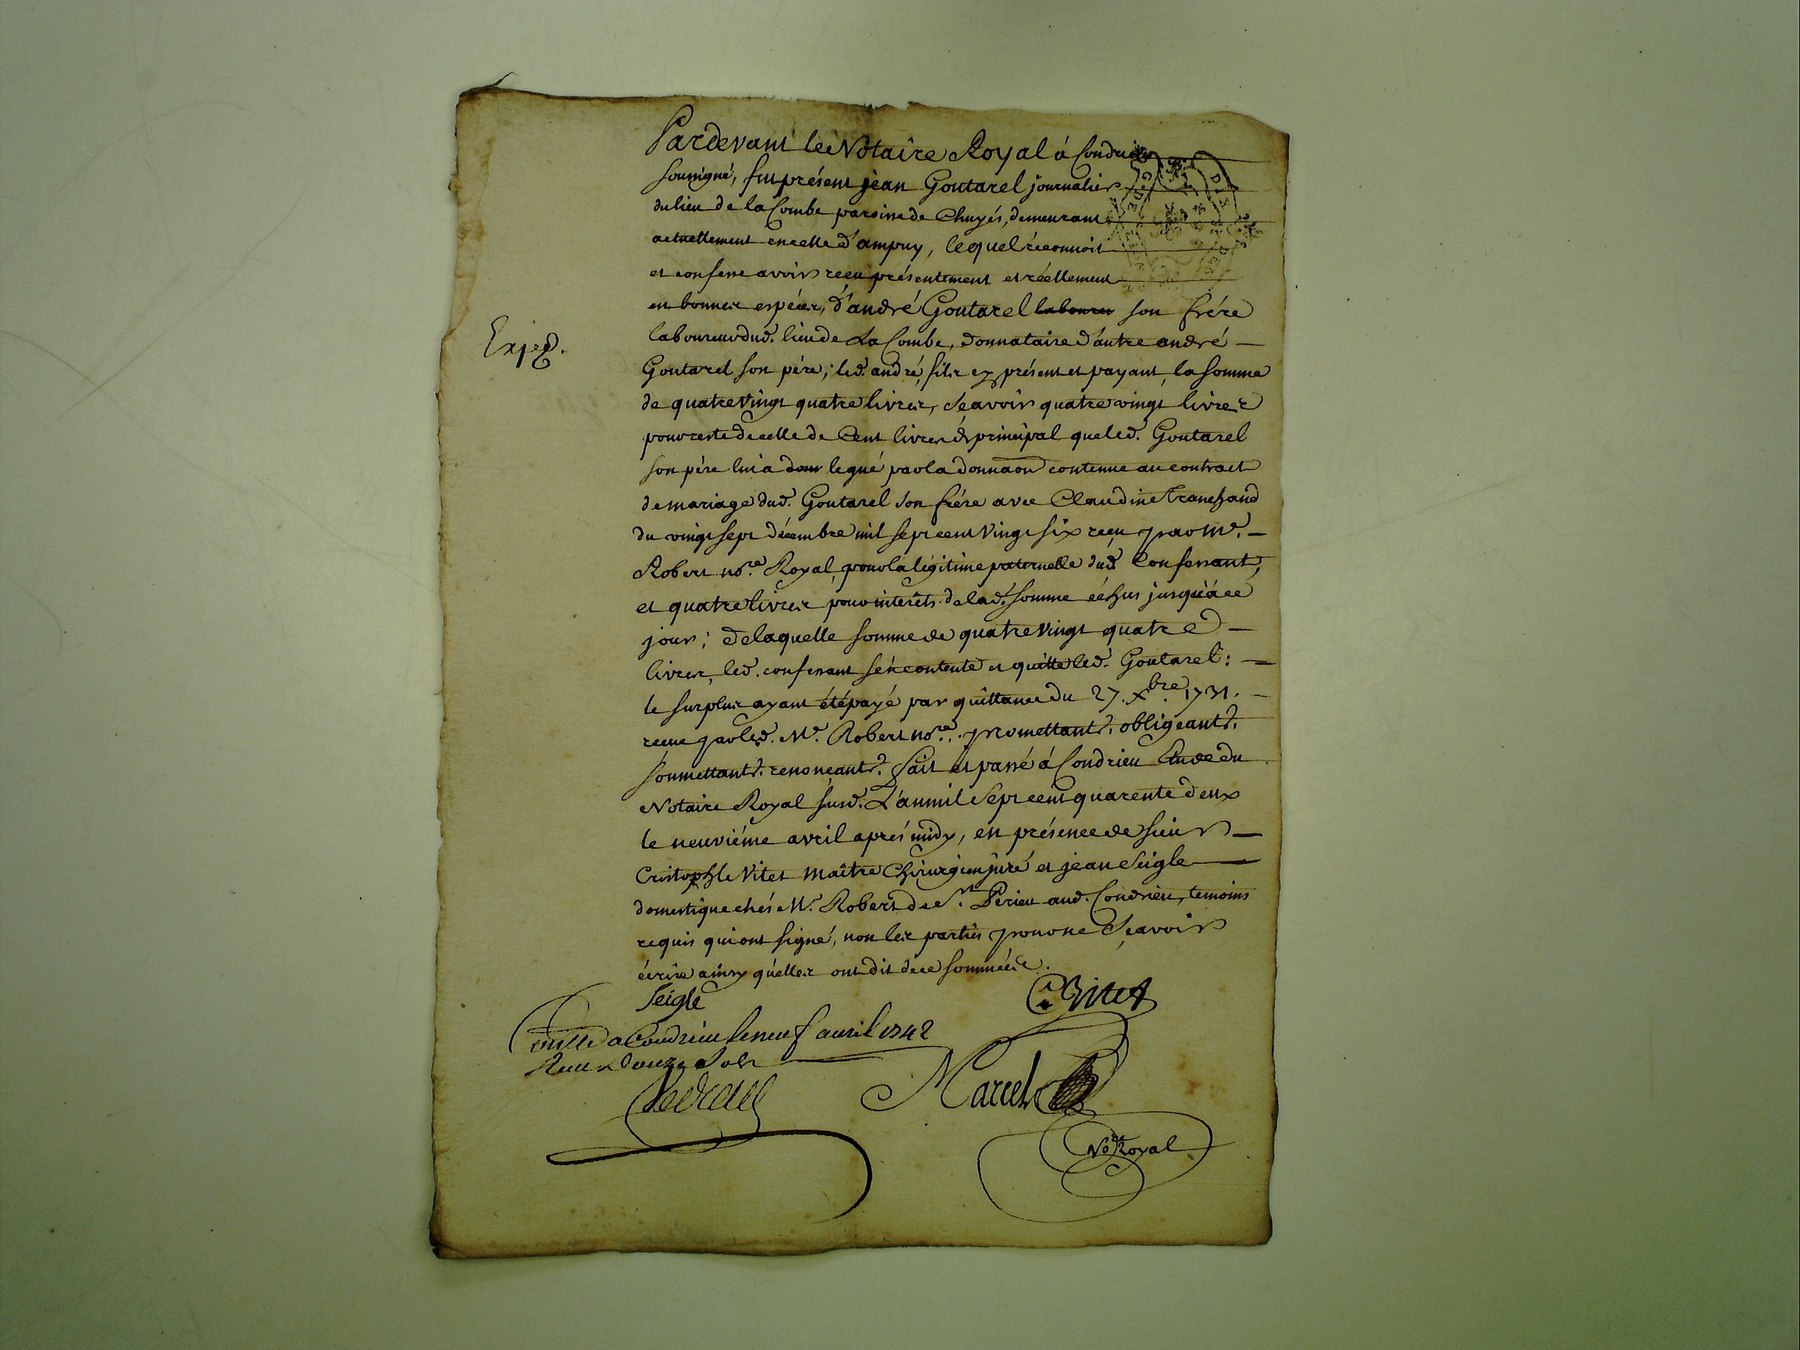 Pardevant le Notaire Royal á Condrieu
soussigné, fut présent jean Goutarel journalier
du lieu de la Combe paroisse de Chuyés, demeurant
actuellement en celle d'ampuy, lequel réconnoit
et confesse avoir reçu présentement et réellement
en bonnes espéces, d'andré Goutarel labourer son frére
laboureur dud. lieu de La Combe, donnataire d'autre andré
Exped.
Goutarel son pére; led. andré, fils cy présent et payant, la somme
de quatre vingt quatre livres, sçavoir quatre vingt livres
pour reste de celle de Cent livres de principal que led. Goutarel
son pére lui a legué par la donnaon contenue au contract
de mariage dud. Goutarel son frére avec Claudine Tranchand
du vingt sept décembre mil sept cent vingt six reçu par Me.
Robert nore. Royal, pour la légitime paternelle dud. Confessant,
et quatre livres pour interêts de lad. somme échus jusqu'á ce
jour; de laquelle somme de quatre vingt quatre
livres, led. confessant s'est contenté et quitte led. Goutarel:
le surplus ayant été payé par quittance du 27. Xbre. 1731.
reçue par led. Me. Robert nore. promettant. obligeant.
soumettant. renonçant. Fait et passé á Condrieu Etude du
Notaire Royal susd. L'an mil sept cent quarente deux
le neuviéme avril aprés midy, en présence de sieur
Cristophle Vitet Maître Chirurgien juré et jean Seigle
domestique chés Mr. Robert de St. Périeu aud. Condrieu, temoins
requis qui ont signé, non les parties pour ne sçavoir
écrire ainsy qu'elles ont dit de ce sommées.
Seigle
C. Vitet
Controllé a Condrieu le neuf avril 1742
Reçu douze sols
Marcel
Nore Royal